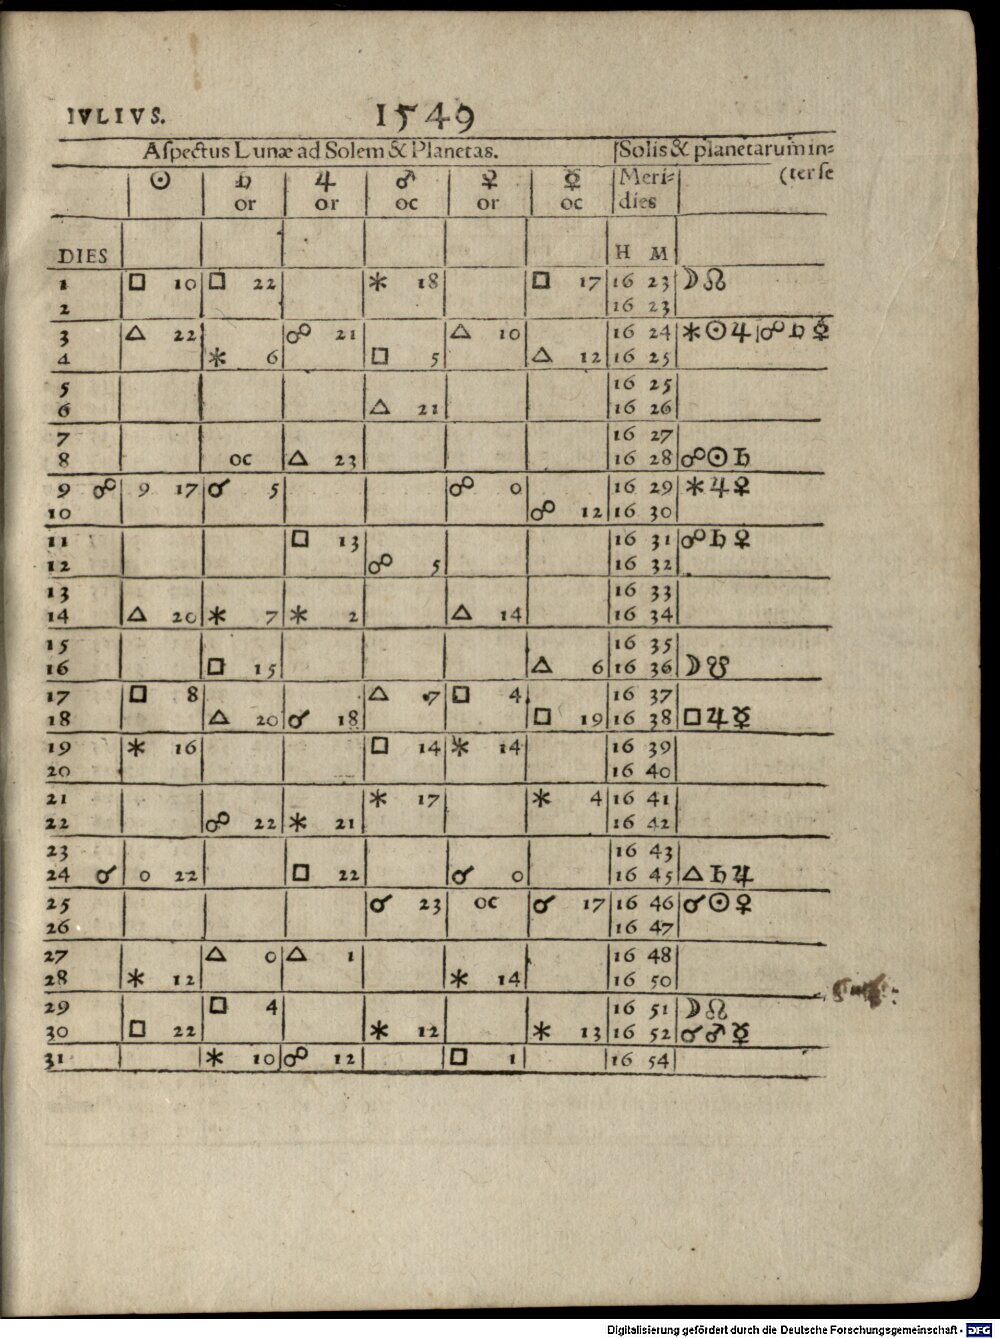 IVLIVS. 1549
Aſpectus Lunæ ad Solem & Planetas. ſSolis & planetarum in=
☉ ♄ ♃ ♂ ♀ ☿ Meri= (ter ſe
or or oc or oc dies
DIES H M
1 □ 10 □ 22 ✱ 18 □ 17 16 23 ☽ ☊
2 16 23
3 △ 22 ☍ 21 △ 10 16 24 ✱ ☉ ♃ ☍ ♄ ☿
4 ✱ 6 □ 5 △ 12 16 25
5 16 25
6 △ 21 16 26
7 16 27
8 oc △ 23 16 28 ☍ ☉ ♄
9 ☍ 9 17 ☌ 5 ☍ 0 16 29 ✱ ♃ ♀
10 ☍ 12 16 30
11 □ 13 16 31 ☍ ♄ ♀
12 ☍ 5 16 32
13 16 33
14 △ 20 ✱ 7 ✱ 2 △ 14 16 34
15 16 35
16 □ 15 △ 6 16 36 ☽ ☋
17 □ 8 △ 7 □ 4 16 37
18 △ 20 ☌ 18 □ 19 16 38 □ ♃ ☿
19 ✱ 16 □ 14 ✱ 14 16 39
20 16 40
21 ✱ 17 ✱ 4 16 41
22 ☍ 22 ✱ 21 16 42
23 16 43
24 ☌ 0 22 □ 22 ☌ 0 16 45 △ ♄ ♃
25 ☌ 23 oc ☌ 17 16 46 ☌ ☉ ♀
26 16 47
27 △ 0 △ 1 16 48
28 ✱ 12 ✱ 14 16 50
29 □ 4 16 51 ☽ ☊
30 □ 22 ✱ 12 ✱ 13 16 52 ☌ ♂ ☿
31 ✱ 10 ☍ 12 □ 1 16 54
Digitalisierung gefördert durch die Deutsche Forschungsgemeinschaft - DFG